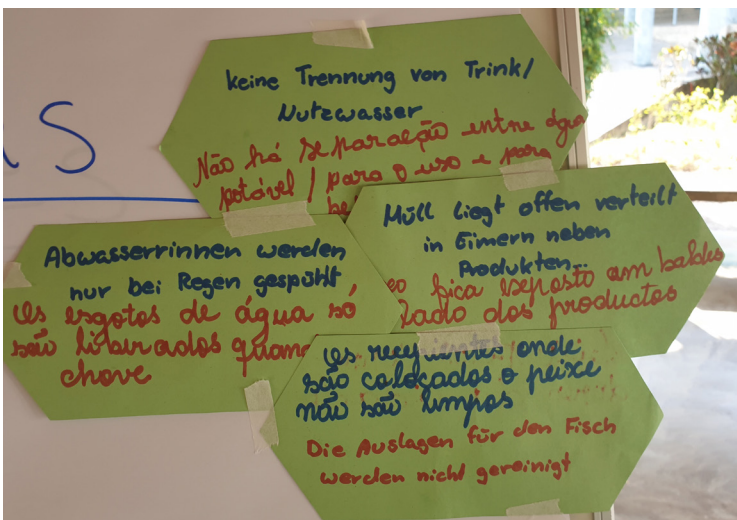 keine Trennung von Trink/
Nutzwasser
Não há separação entre água
potável / para o uso e para
be
Müll liegt offen verteilt
in Eimern neben
Produkten...
fica exposto am baldes
lado dos productos
Abwasserrinnen werden
nur bei Regen gespühlt
Os esgotos de água só
são
chove
Os recepientes onde
são colocados o peixe
não são limpos
Die Auslagen für den Fisch
werden nicht gereinigt